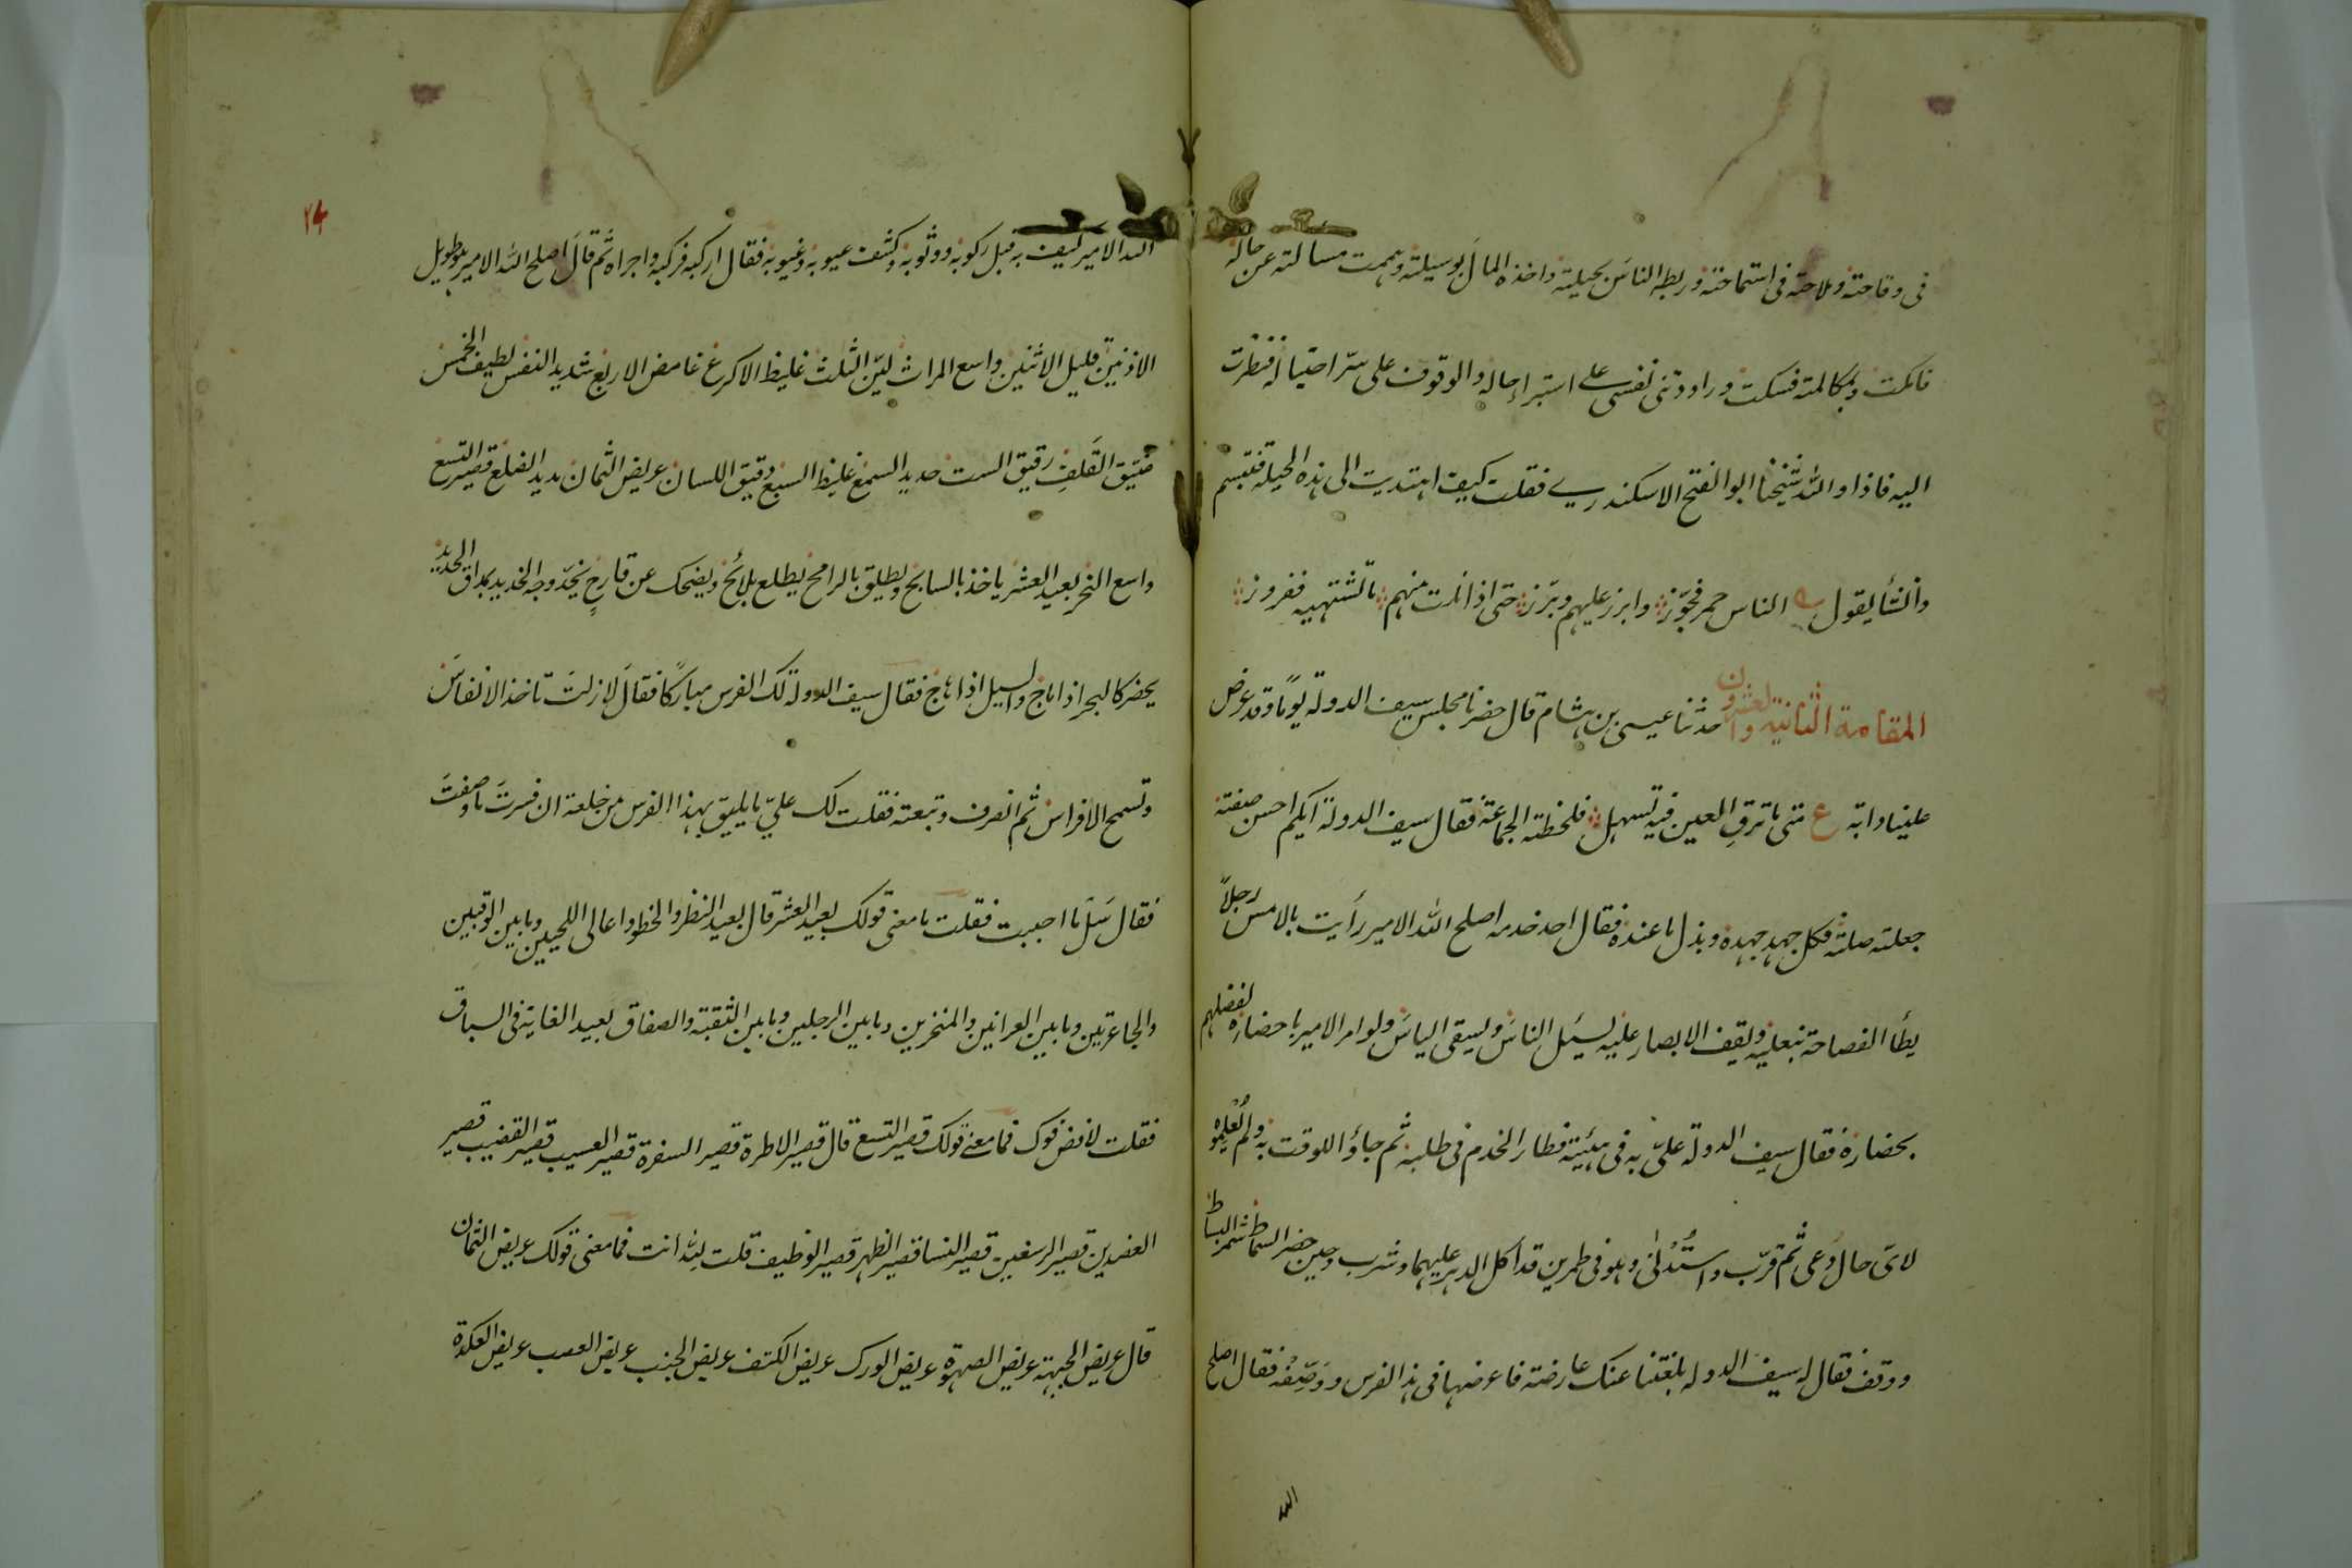 فى وقاحته وملاحته فى استماحته وربطه الناس بحيلته واخذه المال بوسيلته وهممت مسالته عن حاله
فامكت وبمكالمته فسكت وراودتنى نفسى على استبراء حاله والوقوف على سرّ احتياله فنظرت
اليه فاذا والله شيخنا ابو الفتح الاسكندرى فقلت كيف اهتديت الى هذه الحيلة فتبسم
وأنشأ يقول الناس حمر فجوّز وابرز عليهم وبرّز حتى اذا نلت منهم ما تشتهيه ففروز
المقامة الثانية والعشرون حدثنا عيسى بن هشام قال حضرنا مجلس سيف الدولة يومًا وقد عرض
علينا دابة ع متى ما ترقِ العين فيه تسهل فلحظته الجماعة فقال سيف الدولة ايكم احسن صفته
جعلته صلته فكل جهد جهده وبذل ما عنده فقال احد خدمه اصلح الله الامير رأيت بالامس رجلاً
يطأ الفصاحة بنعليه ويقف الابصار عليه يسئل الناس ويسقى الياس ولو امر الامير باحضاره لفضلهم
بحضاره فقال سيف الدولة علىّ به فى هيئته فطار الخدم فى طلبه ثم جاؤا للوقت به ولم يُعْلِموه
لاىّ حال دُعى ثم قرّب واستُدْنى وهو فى طمرين قد اكل الدهر عليهما وشرب وحين حضر السماط شمر البساط
ووقف فقال له سيف الدولة بلغتنا عنك عارضة فاعرضها فى هذا الفرس ووَصْفِه فقال اصلح
الله
٢٤
الله الامير كيف به قبل ركوبه ووثوبه وكشف عيوبه وغيوبه فقال اركبه فركبه واجراه ثم قال اصلح الله الامير هو طويل
الاذنين قليل الاثنين واسع المراث ليّن الثلث غليظ الاكرع غامض الاربع شديد النفس لطيف الخمس
ضيّق القلف رقيق الست حديد السمع غليظ السبع دقيق اللسان عريض الثمان مديد الضلع قصير التسع
واسع النحر بعيد العشر ياخذ بالسابح ويطلق بالرامح يطلع بلائح ويضحك عن قارح يخدّ وجه الجديد بمداق الحديد
يحضر كالبحر اذا ماج والسيل اذا هاج فقال سيف الدولة لك الفرس مباركًا فقال لازلتَ تاخذ الانفاس
وتسمح الافراس ثم انصرف وتبعته فقلت لك علىّ ما يليق بهذا الفرس من خلعة ان فسرتَ ما وصفتَ
فقال سَلْ ما احببت فقلت ما معنى قولك بعيد العشر قال بعيد النظر والخطو واعالى اللحيين وما بين الوقبين
والجاعرتين وما بين العرانين والمنخرين وما بين الرجلين وما بين الثقبة والصفاق بعيد الغاية فى السباق
فقلت لا فض فوك فما معنى قولك قصير التسع قال قصير الاطرة قصير السفرة قصير العسيب قصير القضيب قصير
العضدين قصير الرسغين قصير النسا قصير الظهر قصير الوظيف قلت لِلّه انت فما معنى قولك عريض الثمان
قال عريض الجبهة عريض الصهوة عريض الورك عريض الكتف عريض الجنب عريض العصب عريض العكدة